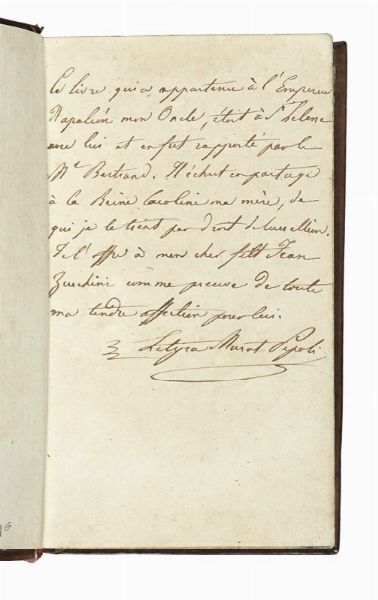 Ce livre qui a appartenu à l'Empereur
Napoléon mon Oncle, était à Ste helene
avec lui et en fut rapporté par le
Ml Bertrand. Il échut en partage
à la Reine Caroline ma mère, de
qui je le tiens par droit de succession.
Je l'offre à mon cher petit Jean
Zucchini comme preuve de toute
ma tendre affection pour lui.
Letizia Murat Pepoli
6